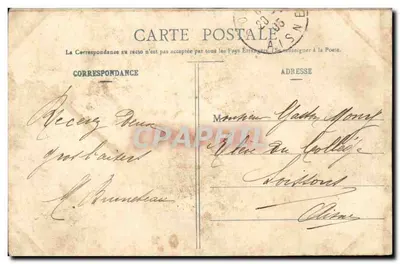 CARTE POSTALE
La Correspondance au recto n'est pas acceptée par tous les Pays Etrangers. (Se renseigner à la Poste).
CORRESPONDANCE
ADRESSE
AISNE
Recevez Deux
gros baisers
Monsieur Gaston
Elève Du Collège
Soissons
Aisne
CPAPHIL